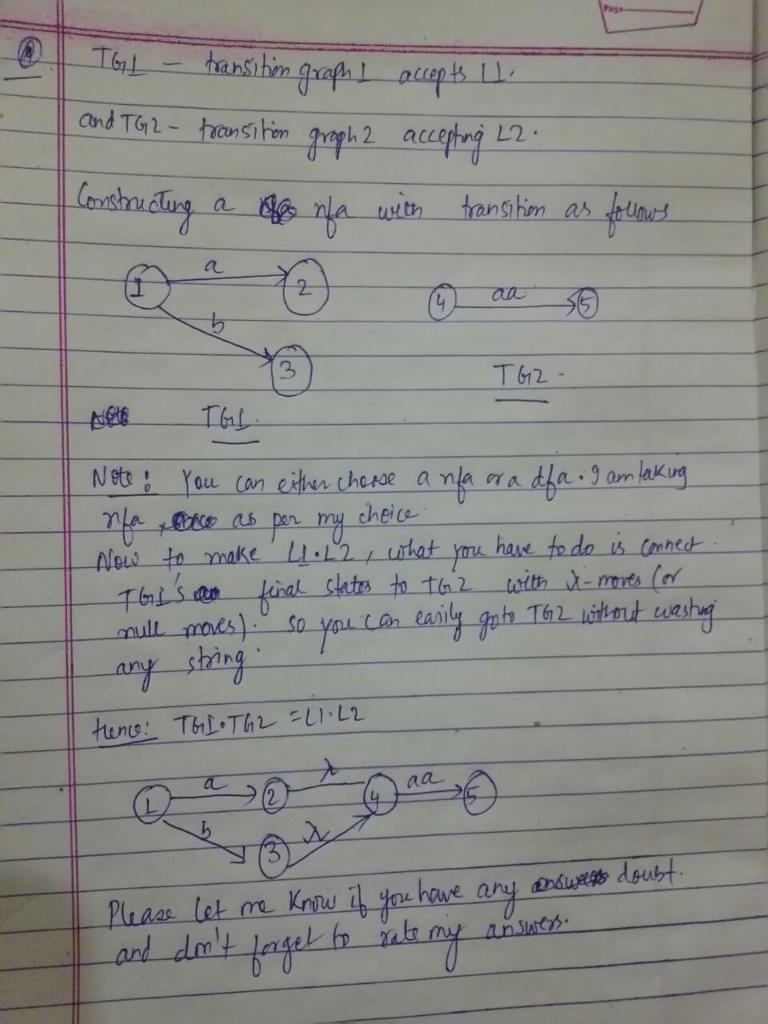 Page
TG1 - transition graph 1 accepts L1.
and TG2 - transition graph 2 accepting L2.
Constructing a nfa with transition as follows
a
1 2
4 aa 5
b
3
TG2.
TG1.
Note: You can either choose a nfa or a dfa. I am taking
nfa, as per my choice.
Now to make L1.L2, what you have to do is connect
TG1's final states to TG2 with λ-moves (or
null moves). so you can easily goto TG2 without wasting
any string.
Hence: TG1.TG2 = L1.L2
a λ aa
1 2 4 5
b λ
3
Please let me know if you have any doubt.
and don't forget to rate my answers.